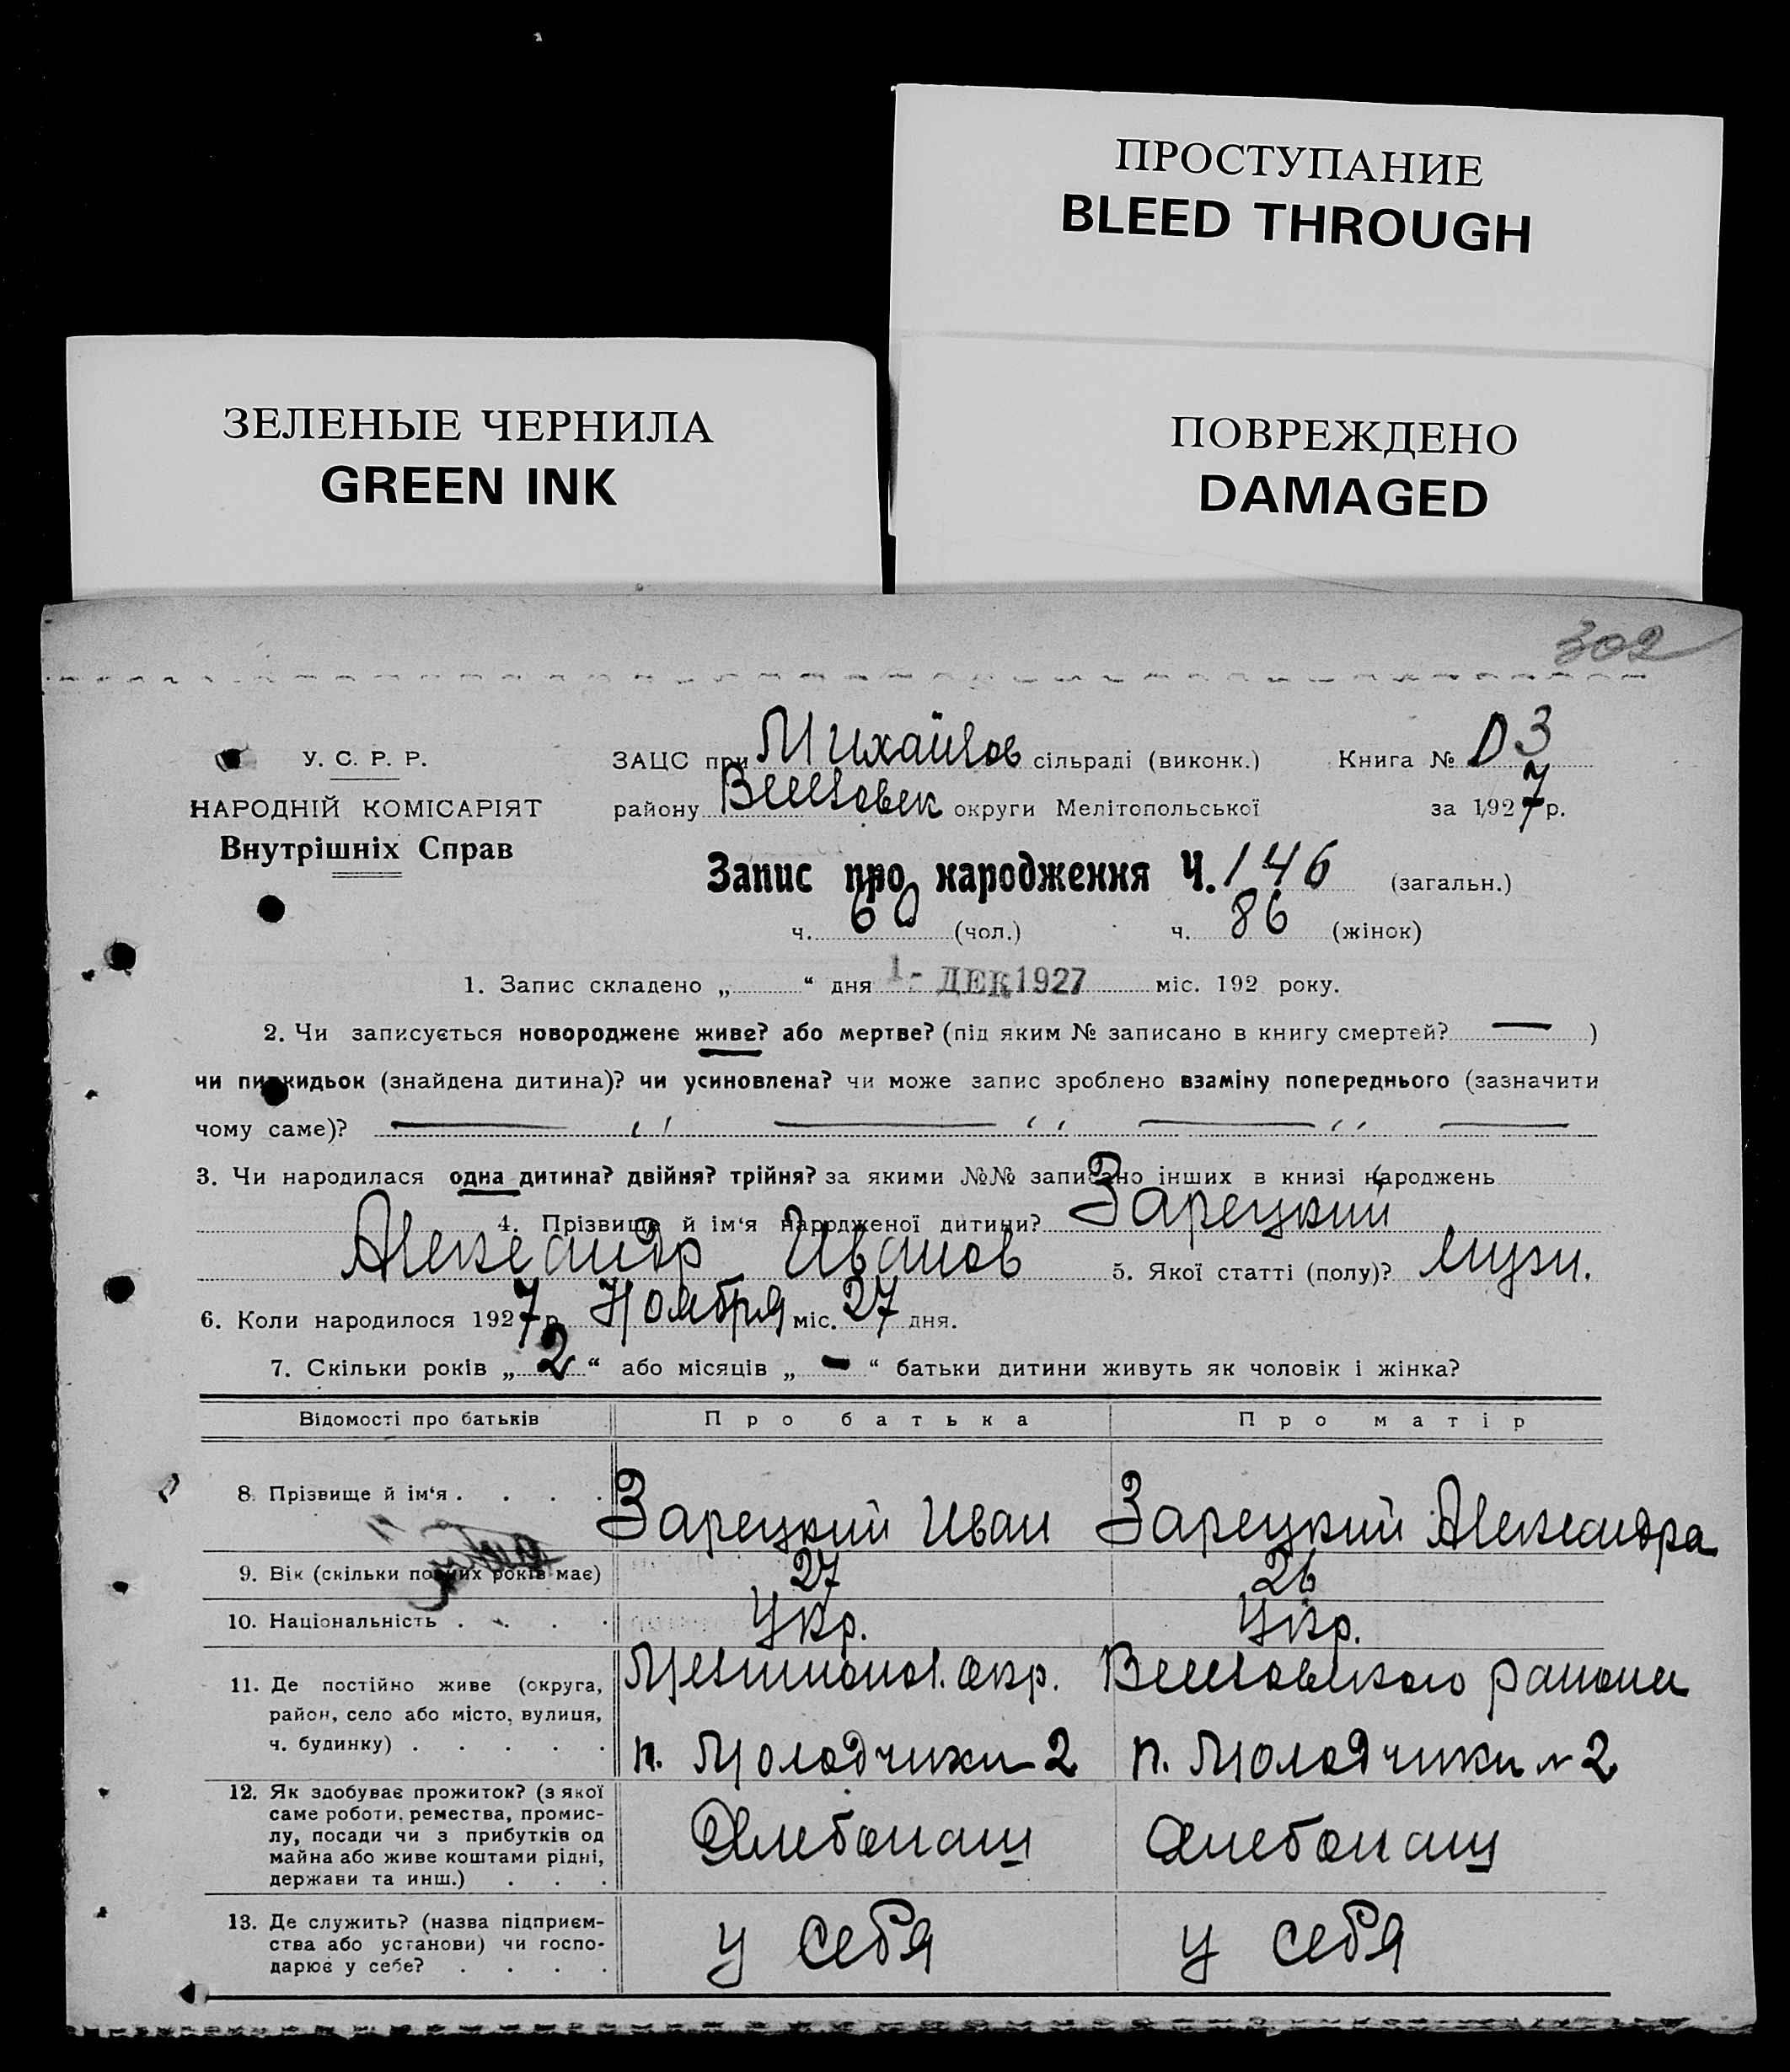 ПРОСТУПАНИЕ
BLEED THROUGH
ЗЕЛЕНЫЕ ЧЕРНИЛА
GREEN INK
ПОВРЕЖДЕНО
DAMAGED
302
У. С. Р. Р.
НАРОДНІЙ КОМІСАРІЯТ
Внутрішніх Справ
ЗАЦС при Михайлов сільраді (виконк.) Книга № 3
району округи Мелітопольської за 1927 р.
Запис про народження Ч. 146 (загальн.)
ч. 60 (чол.) ч. 86 (жінок)
1. Запис складено „ “ дня 1 - ДЕК 1927 міс. 192 року.
2. Чи записується новороджене живе? або мертве? (під яким № записано в книгу смертей? — )
чи пидкидьок (знайдена дитина)? чи усиновлена? чи може запис зроблено взаміну попереднього (зазначити
чому саме)? — ,, — ,, — ,, —
3. Чи народилася одна дитина? двійня? трійня? за якими №№ записано інших в книзі народжень
4. Прізвище й ім‘я народженої дитини? Зарецкий
Александр Иванов 5. Якої статті (полу)? мужч.
6. Коли народилося 1927 р. Ноября міс. 27 дня.
7. Скільки років „ 2 “ або місяців „ — “ батьки дитини живуть як чоловік і жінка?
Відомості про батьків Про батька Про матір
8. Прізвище й ім‘я . . . . Зарецкий Иван Зарецкий Александра
9. Вік (скільки повних років має) 27 26
10. Національність . . . . Укр. Укр.
11. Де постійно живе (округа, район, село або місто, вулиця, ч. будинку) . . . . .
Мелитопол. окр. района
п. Молодчики 2 п. Молодчики № 2
12. Як здобуває прожиток? (з якої
саме роботи, ремества, промис-
лу, посади чи з прибутків од
майна або живе коштами рідні,
держави та инш.) . . .
Хлебопаш Хлебопаш
13. Де служить? (назва підприєм-
ства або установи) чи госпо-
дарює у себе? . . . .
у себя у себя